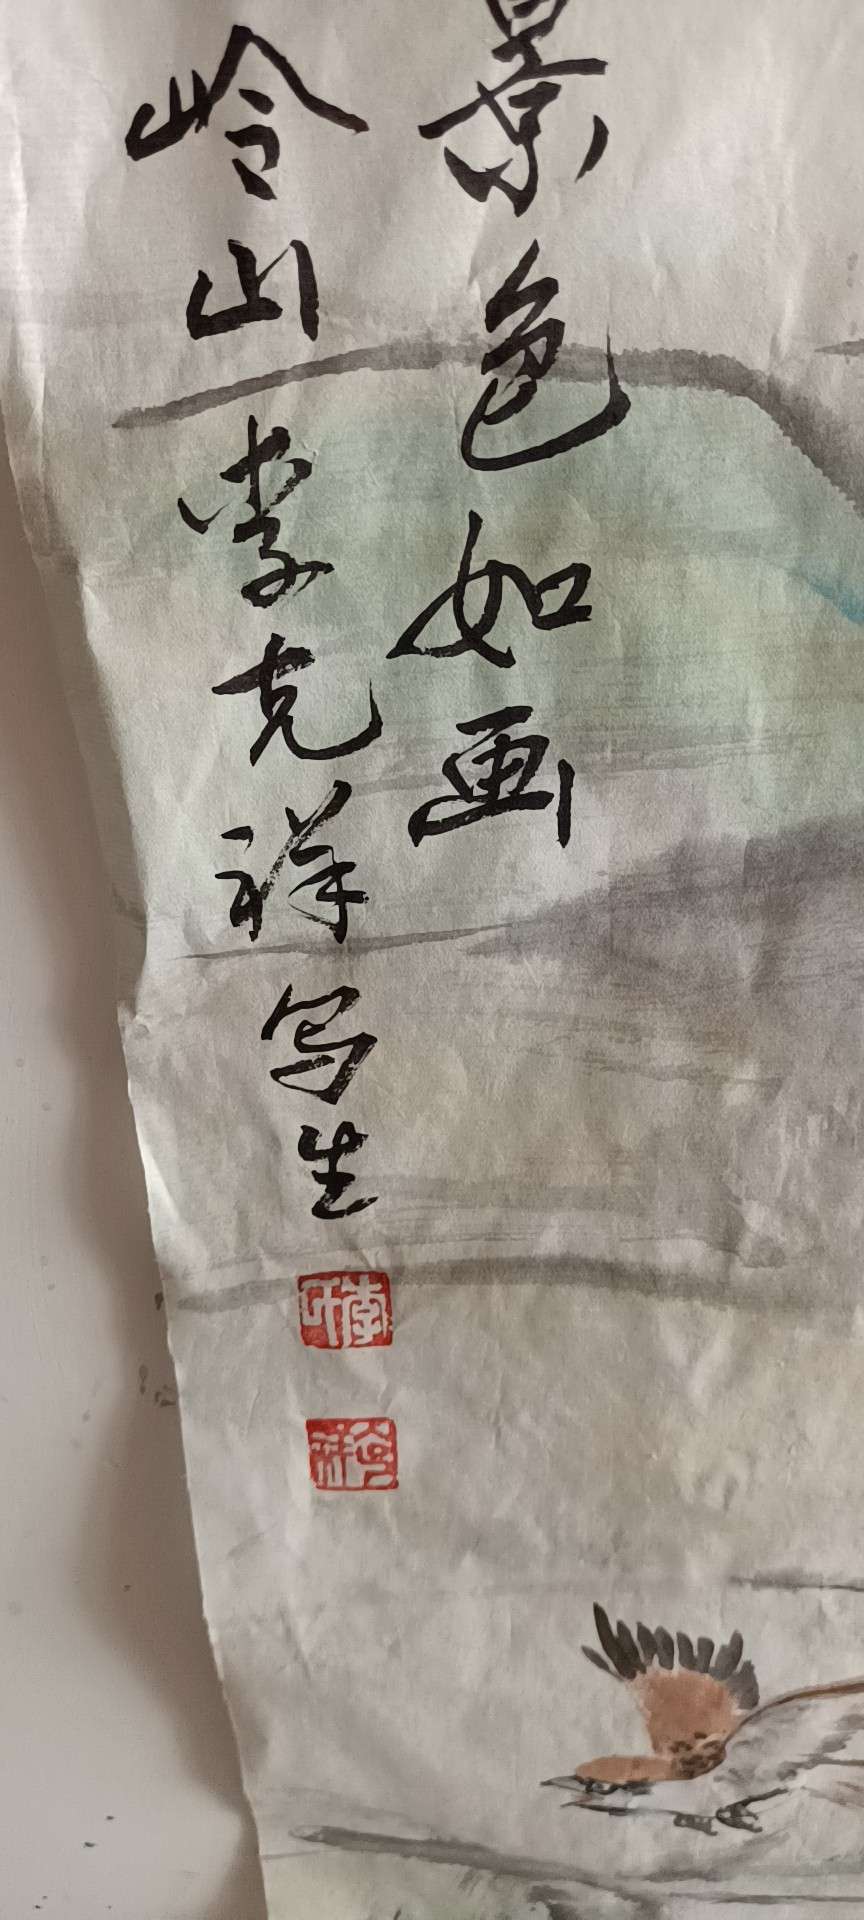 景色如画
岭山李克祥写生